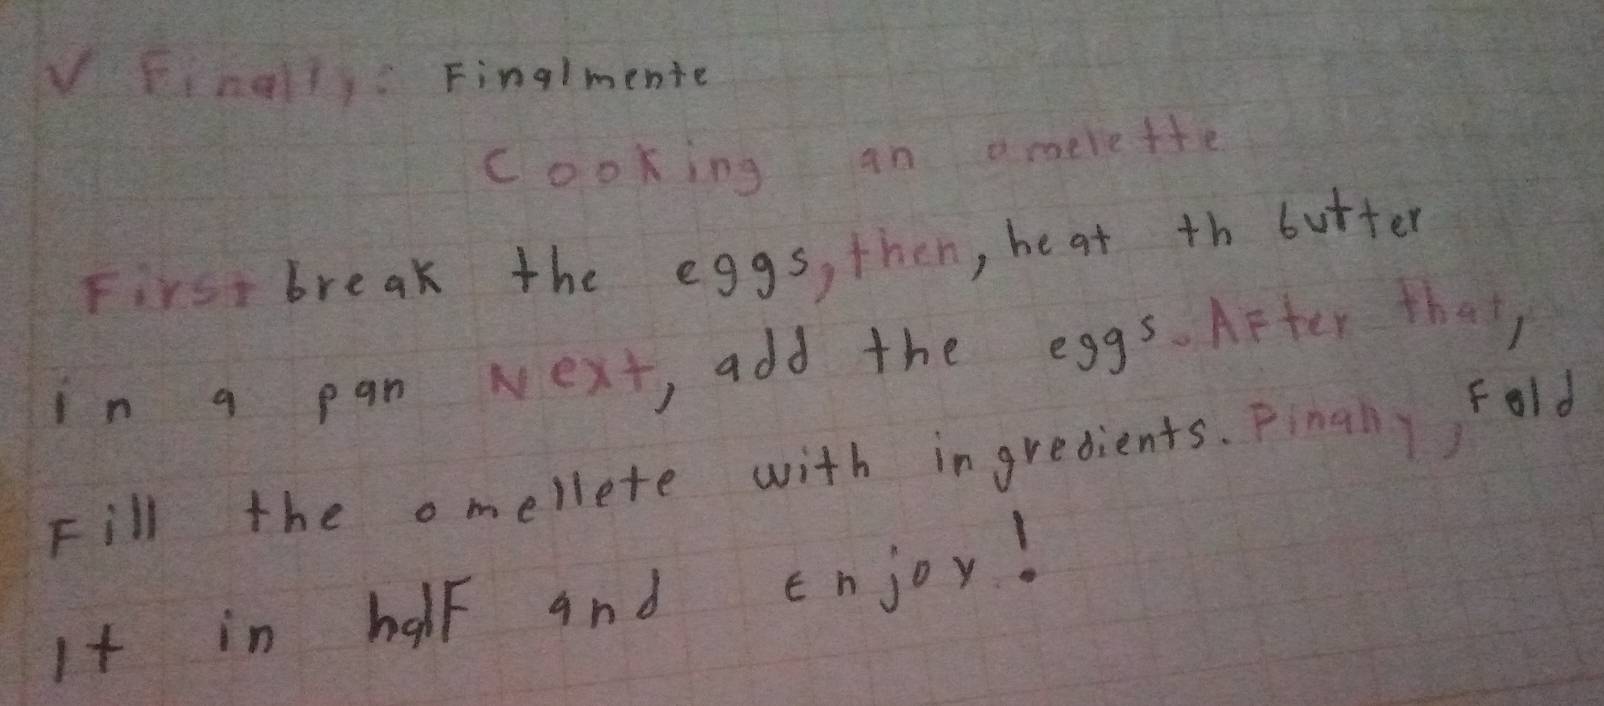 ✓ Finally: Finalmente
Cooking an omelette
First break the eggs, then, heat th butter
in a pan Next, add the eggs. After that,
Fill the omellete with ingredients. Finally, Fold
It in half and Enjoy!